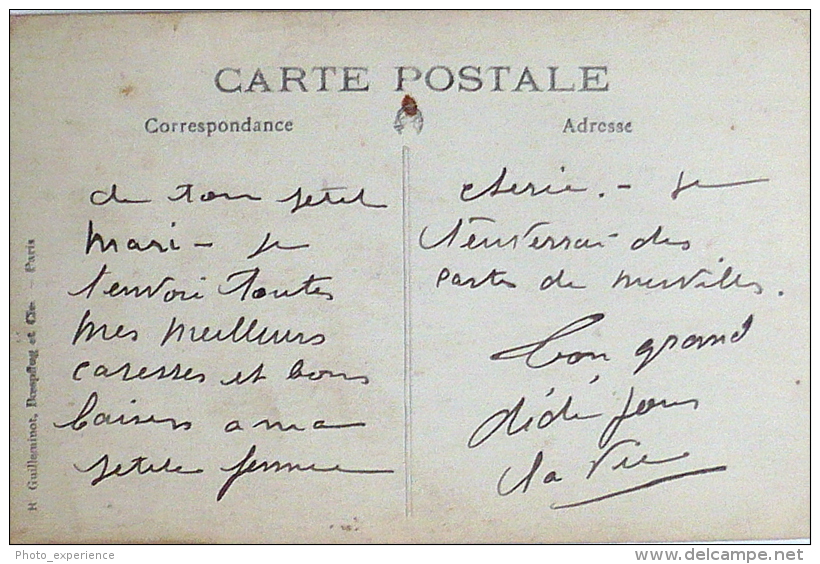 CARTE POSTALE
Correspondance
Adresse
de ton petit
mari - Je
t'envoi toutes
mes meilleurs
caresses et bons
baisers a ma
petite femme
cherie. - Je
t'enverrai des
cartes de merville.
Ton grand
dédé pour
la vie
R Guilleminot, Bœspflug et Cie. - Paris
Photo_experience
delcampe.net